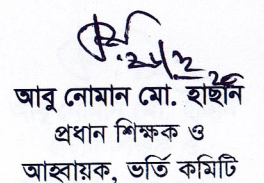 আবু নোমান মো. হাছনি
প্রধান শিক্ষক ও
আহবায়ক, ভর্তি কমিটি